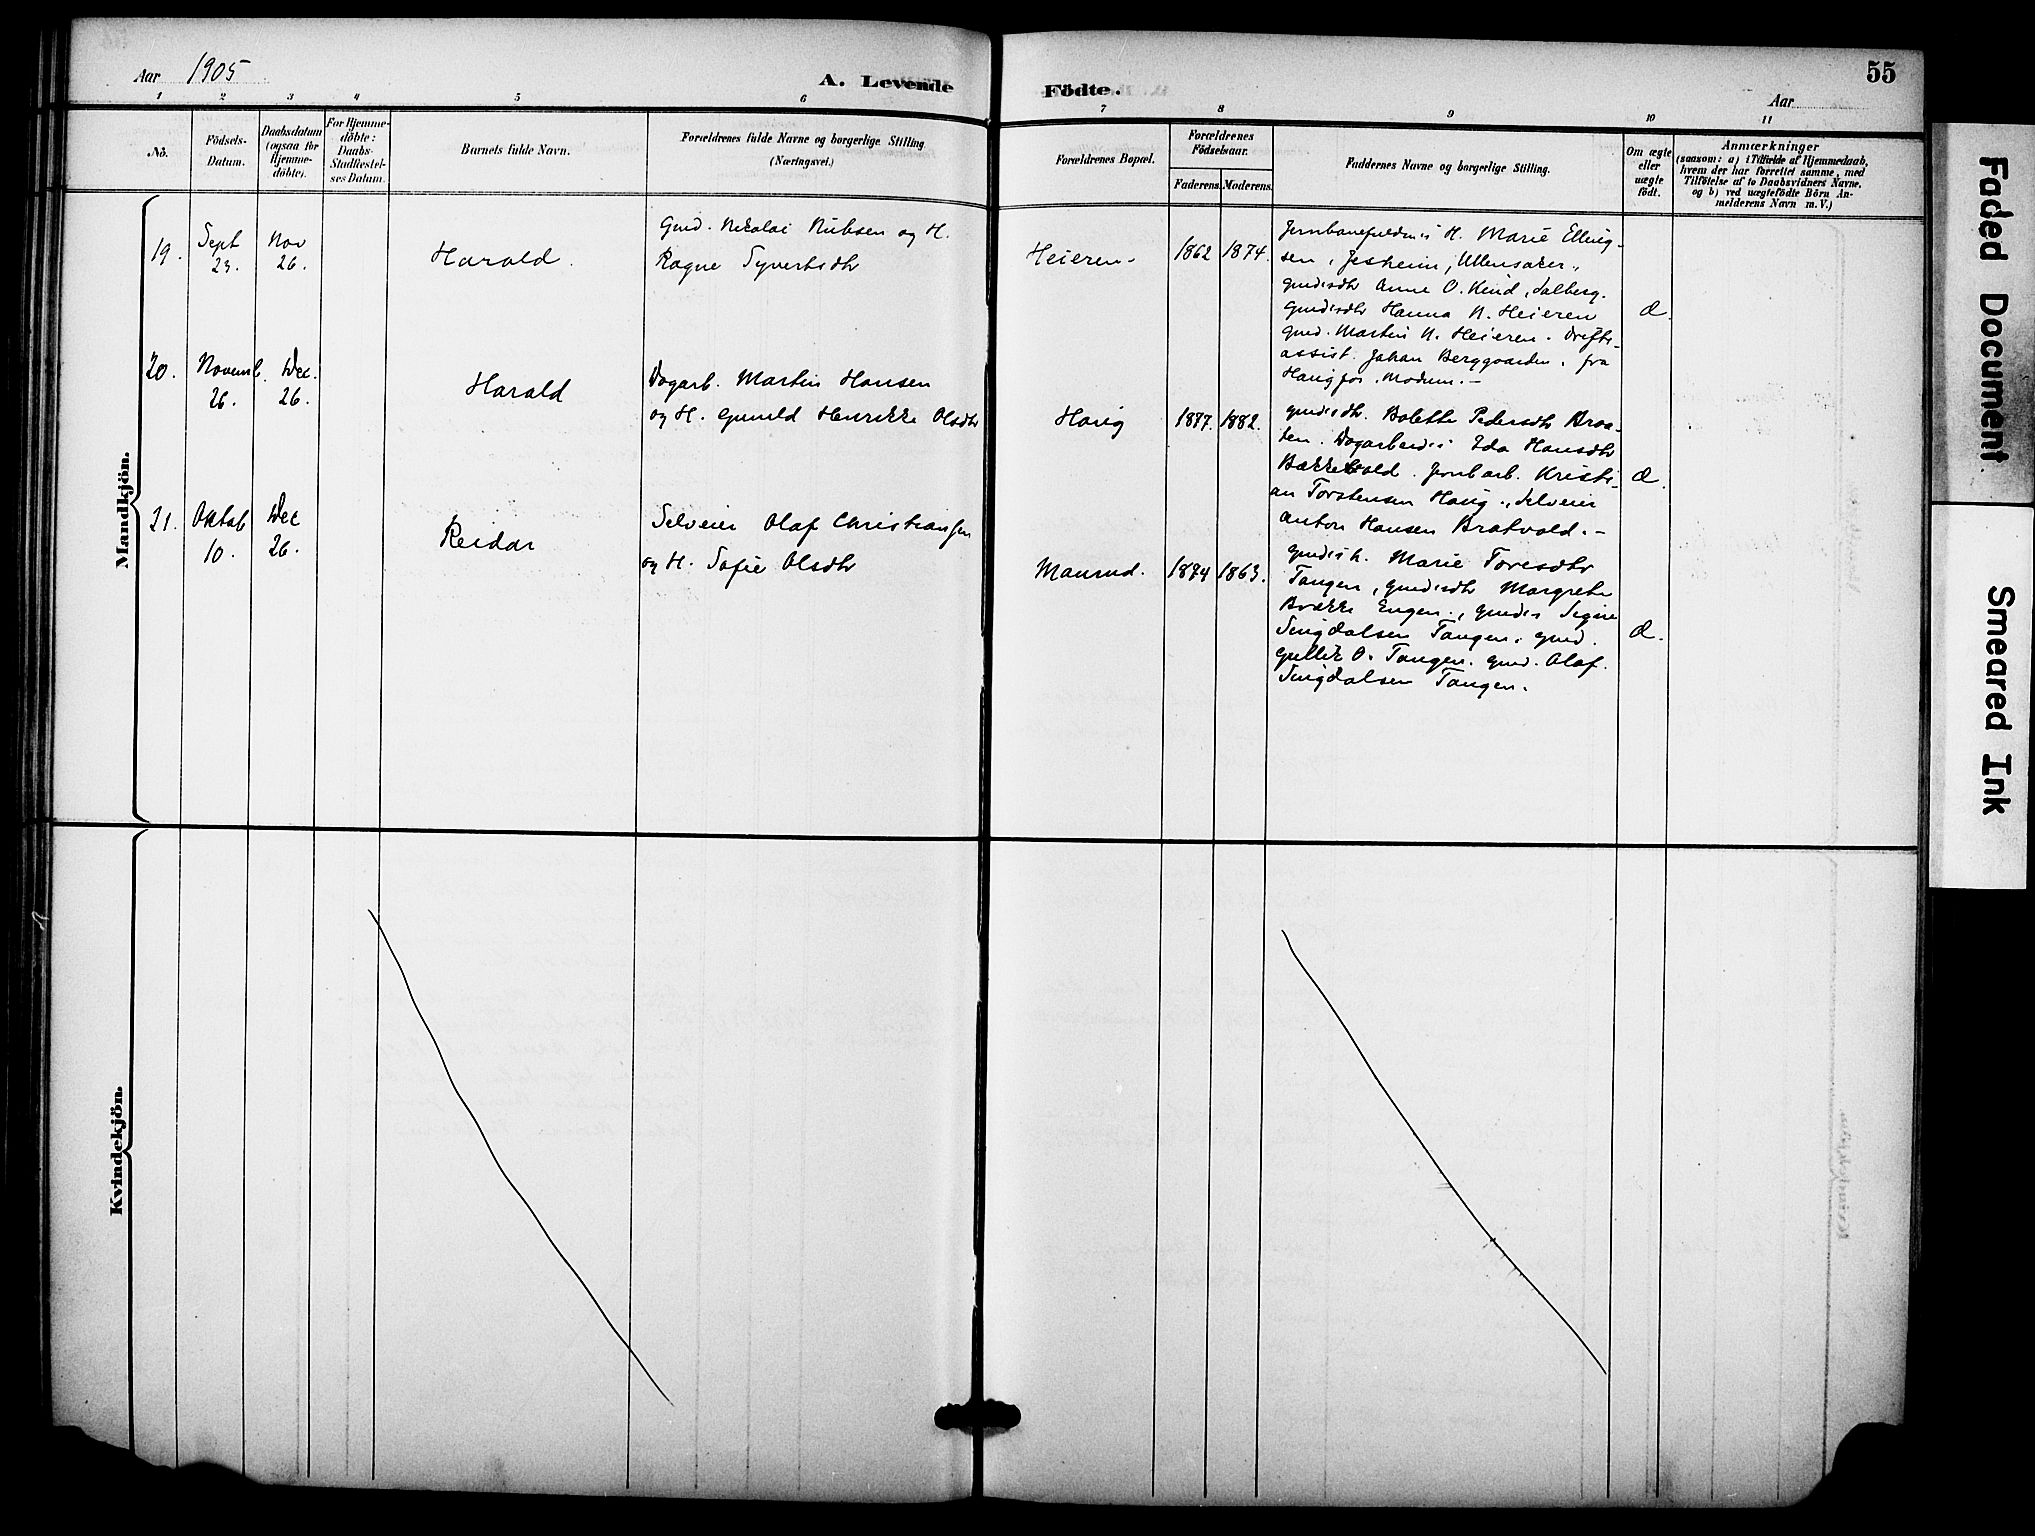 Aar 1905
A. Levende
Födte.
Aar
55
1 2 3 4 5 6 7 8 9 10 11
No.
Födsels-
Datum.
Daabsdatum
(ogsaa for
Hjemme-
döbte).
For Hjemme-
döbte:
Daabs-
Stadfæstel-
ses Datum.
Barnets fulde Navn.
Forældrenes fulde Navne og borgerlige Stilling
(Næringsvei.)
Forældrenes Bopæl.
Forældrenes
Födselsaar.
Faderens. Moderens.
Faddernes Navne og borgerlige Stilling.
Om ægte
eller
uægte
födt.
Anmærkninger
(saasom: a) i Tilfælde af Hjemmedaab,
hvem der har forrettet samme, med
Tilföielse af to Daabsvidners Navne,
og b) ved uægtefödte Börn An-
melderens Navn m. V.)
Mandkjön.
19.
Sept
23.
Nov
26.
Harald.
Gmd. Nikolai Nubsen og H.
Ragne Syvertsdtr
Heieren.
1862 1874.
H. Marie Elling-
sen, Jesheim, Ullensaker,
Anne O. Kind, Salberg.
Hanna N. Heieren
gmd. Martin N. Heieren. Drifts-
assist. Johan Berggaarden. fra
Haugfos. Modum.-
æ.
20.
Novemb.
26.
Dec.
26.
Harald
Dagarb. Martin Hansen
og H. Gunild Henrikke Olsdtr
Haug
1877. 1882.
Bolette Pedersdtr Braa-
ten. Ida Hansdtr
Bækkevold. Jernb arb. Kristi-
an Torstensen Haug. Selveier
Anton Hansen Bratvold.-
æ.
21.
Oktob
10.
Dec
26.
Reidar
Selveier Olaf Christiansen
og H. Sofie Olsdtr
Maurud.
1874 1863.
Marie Toresdtr
Tangen, Margrete
Brække Engen., Signe
Singdalsen Tangen, gmd.
Gullik O. Tangen. gmd. Olaf
Singdalsen Tangen.
æ.
Kvindekjön.
Faded Document
Smeared Ink